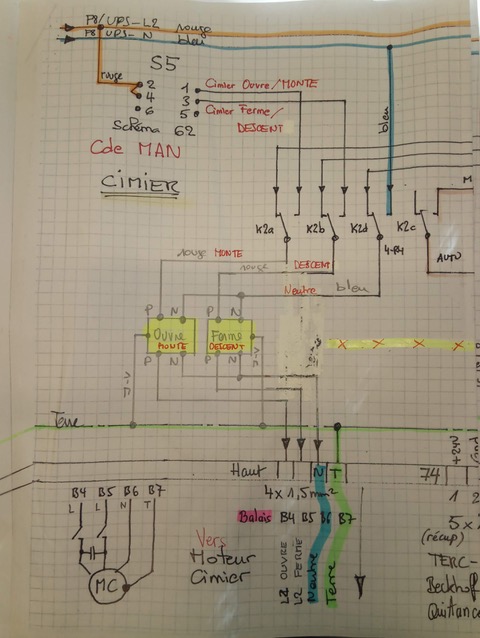 P8/UPS-L2 rouge
P8 UPS-N bleu
S5
rouge
2 1 Cimier Ouvre/MONTE
4 3
6 5 Cimier Ferme/
DESCENT
Schéma 62
Cde MAN
CIMIER
bleu
K2a K2b K2d K2c
4-P4
AUTO
rouge MONTE
rouge DESCENT
Neutre bleu
P N P N
Ouvre Ferme
MONTE DESCENT
P N P N
J-V J-V
Terre
Haut N T 74 +24V
4x1,5mm² 1 2
B4 B5 B6 B7
L L N T
Balais B4 B5 B6 B7
MC
Vers
Moteur
Cimier
L2 OUVRE
L2 FERME
Neutre
Terre
5x
(récup)
TERC-
Beckhof
Quittanc